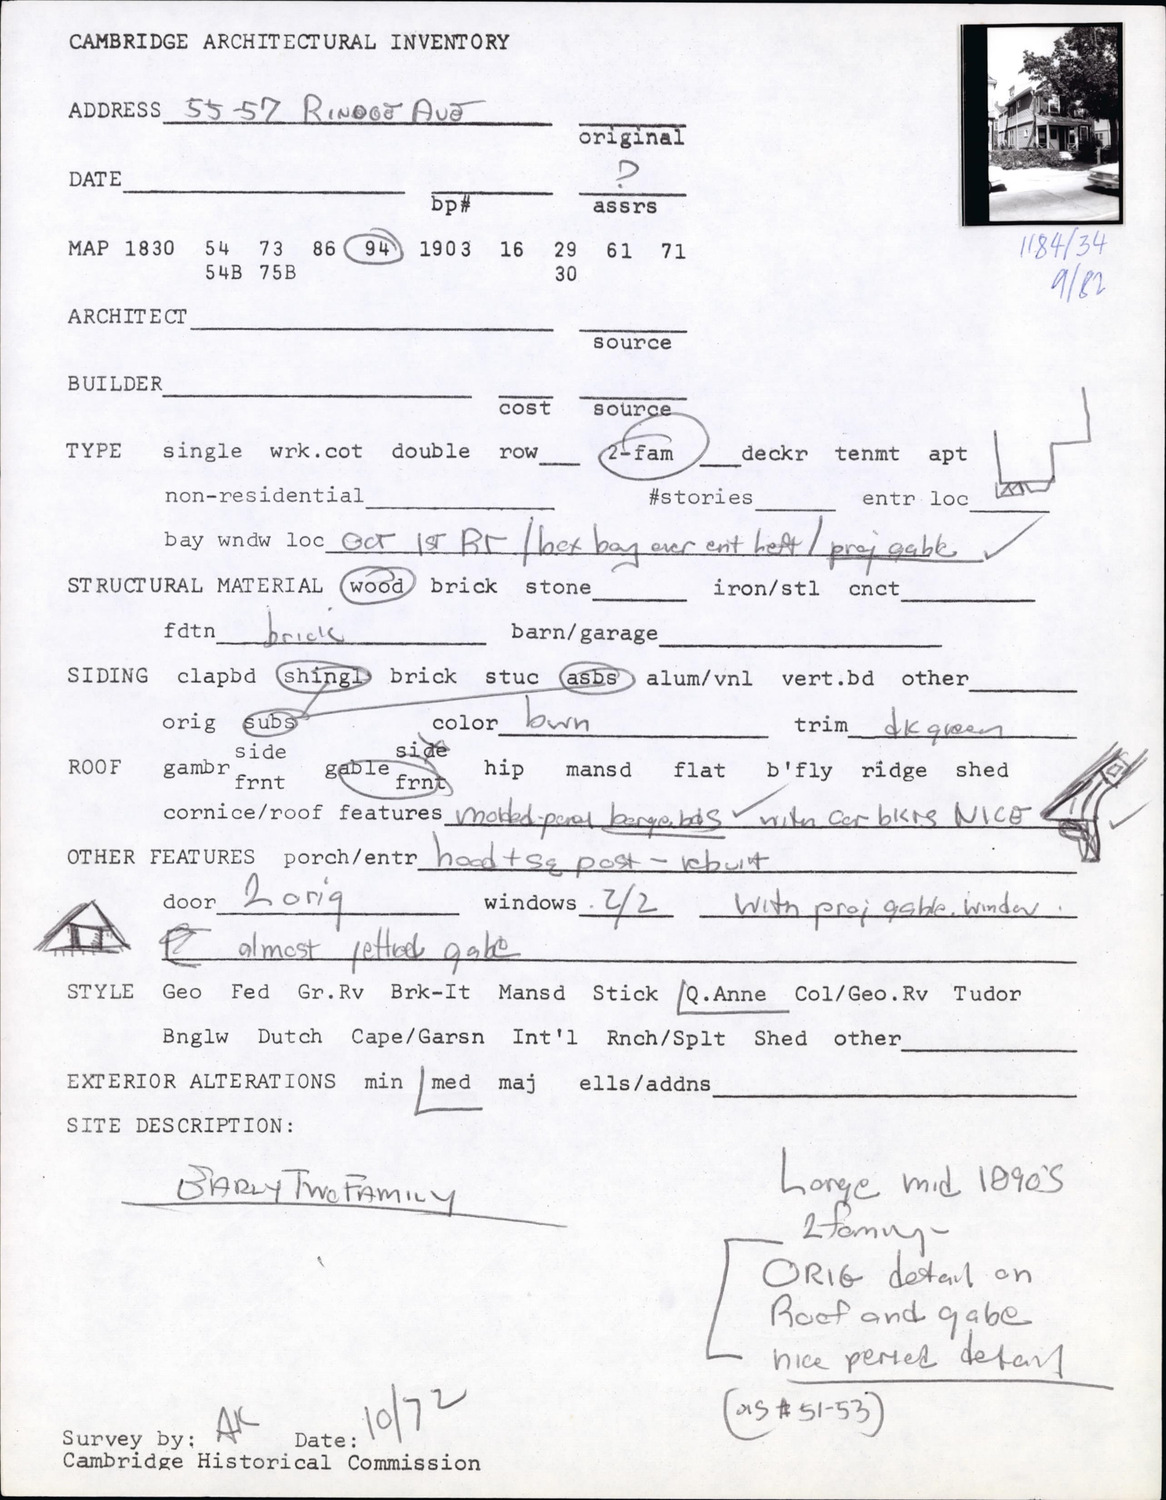 CAMBRIDGE ARCHITECTURAL INVENTORY
ADDRESS 55-57 RINDGE AVE
original
DATE ?
bp# assrs
MAP 1830 54 73 86 94 1903 16 29 61 71
54B 75B 30
1184/34
9/82
ARCHITECT
source
BUILDER
cost source
TYPE single wrk.cot double row 2-fam deckr tenmt apt
non-residential #stories entr loc
bay wndw loc Oct 1st Rt / box bay over ent left / proj gable
STRUCTURAL MATERIAL wood brick stone iron/stl cnct
fdtn brick barn/garage
SIDING clapbd shingl brick stuc asbs alum/vnl vert.bd other
orig subs color bwn trim dk green
side side
ROOF gambr gable hip mansd flat b'fly ridge shed
frnt frnt
cornice/roof features molded panel barge bds with car bkts NICE
OTHER FEATURES porch/entr hood + sq post - rebuilt
door 2 orig windows 2/2 with proj gable window.
almost jettied gable
STYLE Geo Fed Gr.Rv Brk-It Mansd Stick Q.Anne Col/Geo.Rv Tudor
Bnglw Dutch Cape/Garsn Int'l Rnch/Splt Shed other
EXTERIOR ALTERATIONS min med maj ells/addns
SITE DESCRIPTION:
EARLY TWO FAMILY
Large mid 1890's
2 family -
ORIG detail on
Roof and gable
nice period detail
(as # 51-53)
Survey by: AK Date: 10/72
Cambridge Historical Commission